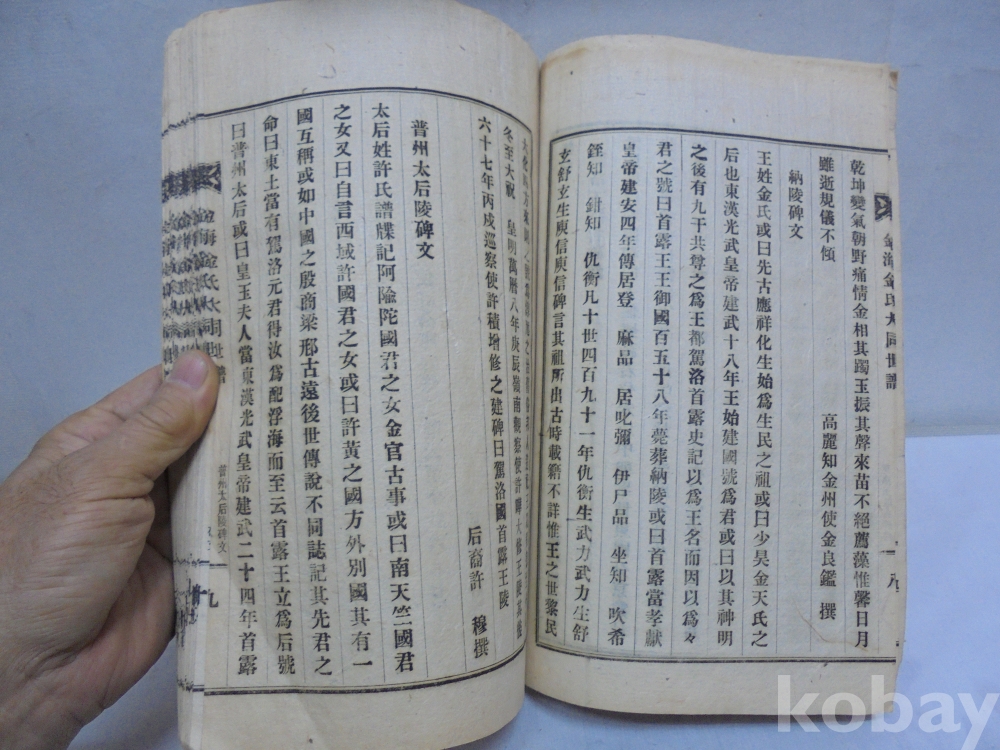 金海金氏大同世譜
八
乾坤變氣朝野痛情金相其躅玉振其聲來苗不絕薦藻惟馨日月
雖逝規儀不傾
高麗知金州使金良鑑 撰
納陵碑文
王姓金氏或曰先古應祥化生始爲生民之祖或曰少昊金天氏之
后也東漢光武皇帝建武十八年王始建國號爲君或曰以其神明
之後有九干共尊之爲王都駕洛首露史記以爲王名而因以爲々
君之號曰首露王王御國百五十八年薨葬納陵或曰首露當孝獻
皇帝建安四年傳居登 麻品 居叱彌 伊尸品 坐知 吹希
銍知 鉗知 仇衡凡十世四百九十一年仇衡生武力武力生舒
玄舒玄生庾信庾信碑言其祖所出古時載籍不詳惟王之世黎民
冬至大祝 皇明萬曆八年庚辰嶺南觀察使許曄大修王陵其後
六十七年丙戌巡察使許積增修之建碑曰駕洛國首露王陵
后裔許 穆撰
普州太后陵碑文
太后姓許氏譜牒記阿隃陀國君之女金官古事或曰南天竺國君
之女又曰自言西域許國君之女或曰許黃之國方外別國其有一
國互稱或如中國之殷商梁邢古遠後世傳說不同誌記其先君之
命曰東土當有駕洛元君得汝爲配浮海而至云首露王立爲后號
曰普州太后或曰皇玉夫人當東漢光武皇帝建武二十四年首露
普州太后陵碑文
九
金海金氏大同世譜
kobay